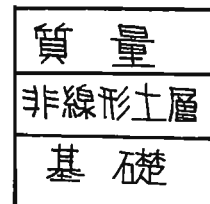 質量
非線形土層
基礎